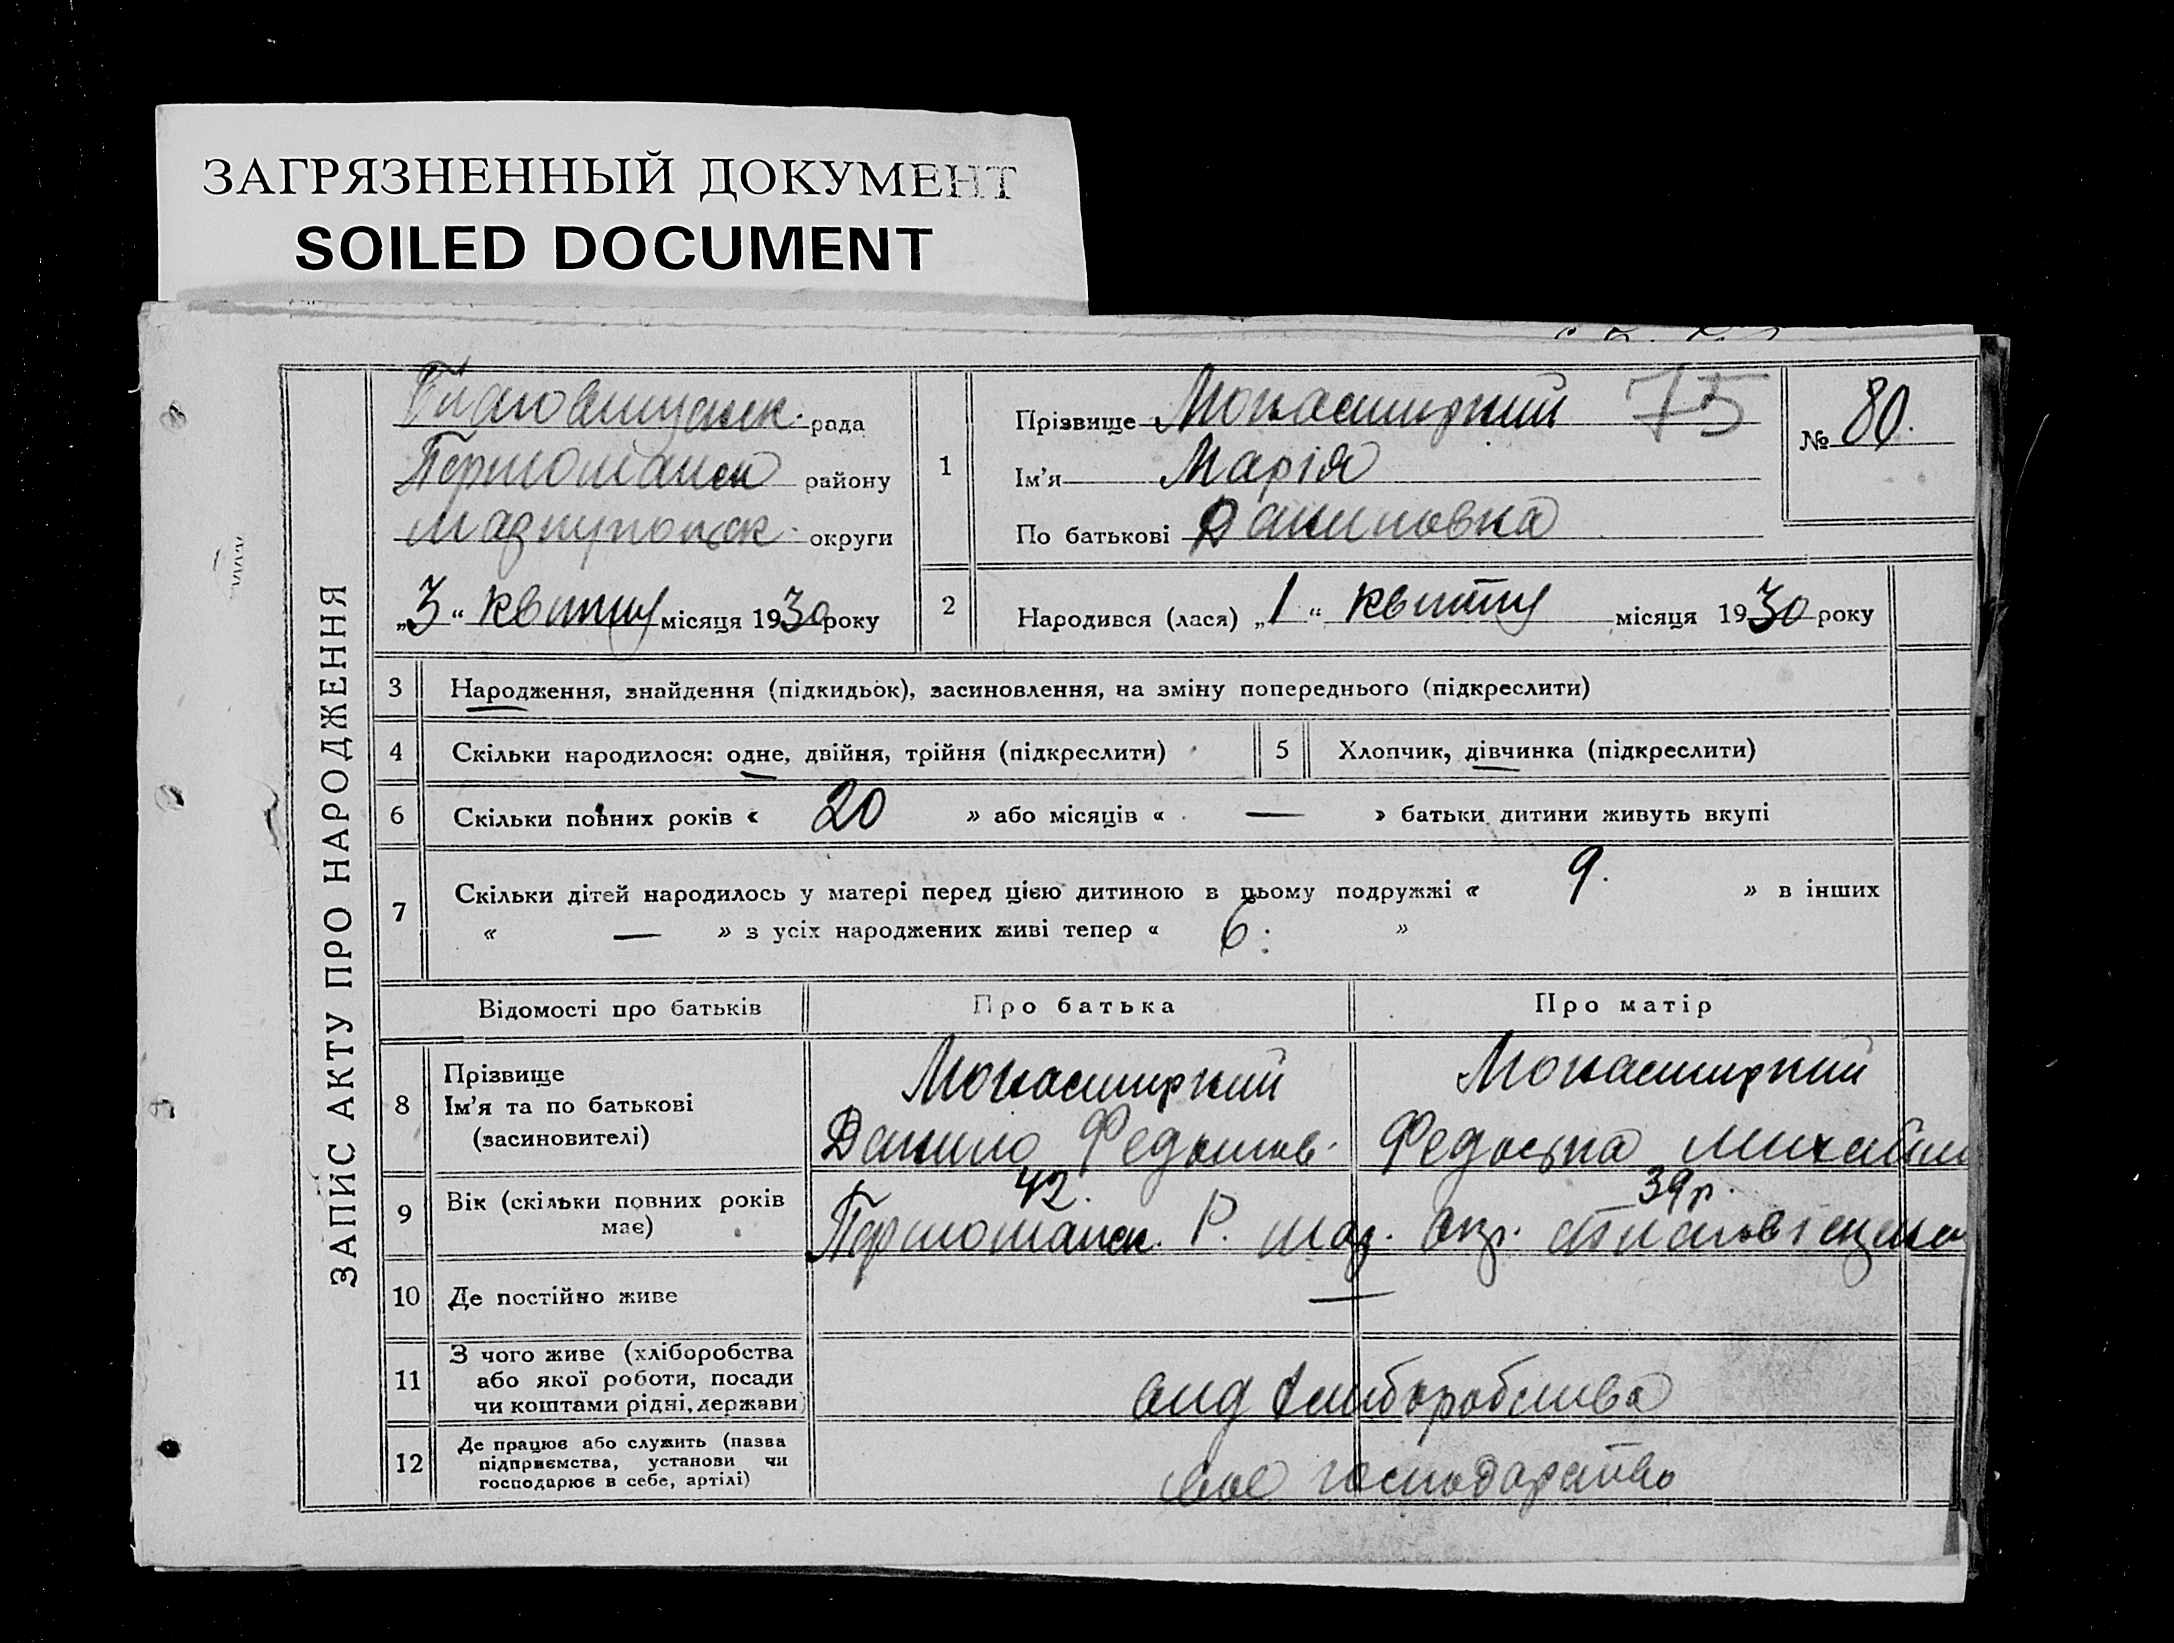 ЗАГРЯЗНЕННЫЙ ДОКУМЕНТ
SOILED DOCUMENT
ЗАПИС АКТУ ПРО НАРОДЖЕННЯ
рада
району
округи
„3“ квітну місяця 1930 року
1
Прізвище Монастирний 75
Ім'я Марія
По батькові Даниловна
№ 80.
2
Народився (лася) „1“ квітну місяця 1930 року
3 Народження, знайдення (підкидьок), засиновлення, на зміну попереднього (підкреслити)
4 Скільки народилося: одне, двійня, трійня (підкреслити)
5 Хлопчик, дівчинка (підкреслити)
6 Скільки повних років « 20 » або місяців « — » батьки дитини живуть вкупі
7 Скільки дітей народилось у матері перед цією дитиною в цьому подружжі « 9. » в інших
« — » з усіх народжених живі тепер « 6. »
Відомості про батьків
Про батька
Про матір
8
Прізвище
Ім'я та по батькові
(засиновителі)
Монастирний
Данило
Монастирний
9
Вік (скільки повних років
має)
42.
39 р.
10 Де постійно живе
—
11
З чого живе (хліборобства
або якої роботи, посади
чи коштами рідні, держави)
хліборобства
12
Де працює або служить (назва
підприємства, установи чи
господарює в себе, артілі)
своє господарство